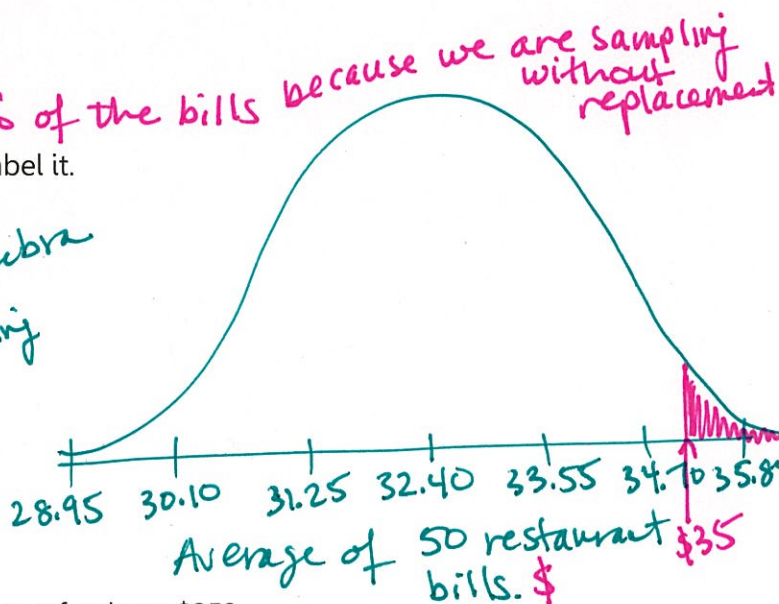 of the bills because we are sampling
without
replacement
label it.
28.95 30.10 31.25 32.40 33.55 34.70
Average of 50 restaurant $35
bills. $